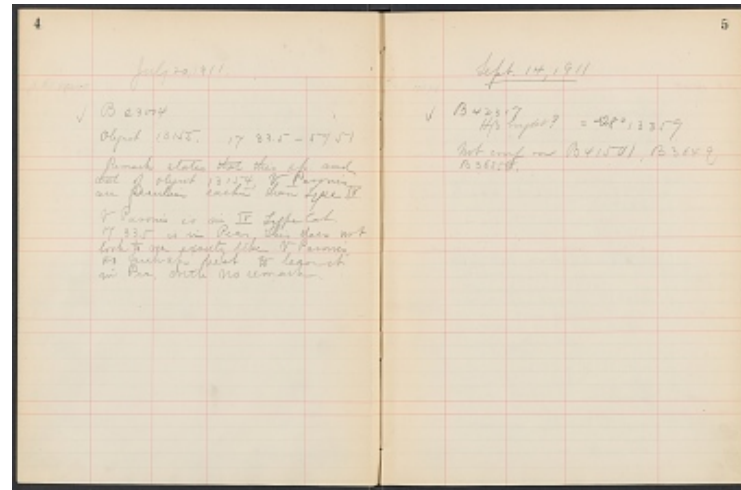 4
July 20 1911
B 23004
Object 13155. 17 33.5 - 57 51
Remark states that this sp. and
that of object 13154, V Pavonis,
are peculiar rather than type IV
V Pavonis is in IV Type Cat.
17 33.5 is in Pec. This does not
look to me exactly like V Pavonis
so perhaps best to leave it
in Pec. with no remark.
5
Sept. 14, 1911
B 42317
= -28° 13359
Not conf. on B 41501, B 3648